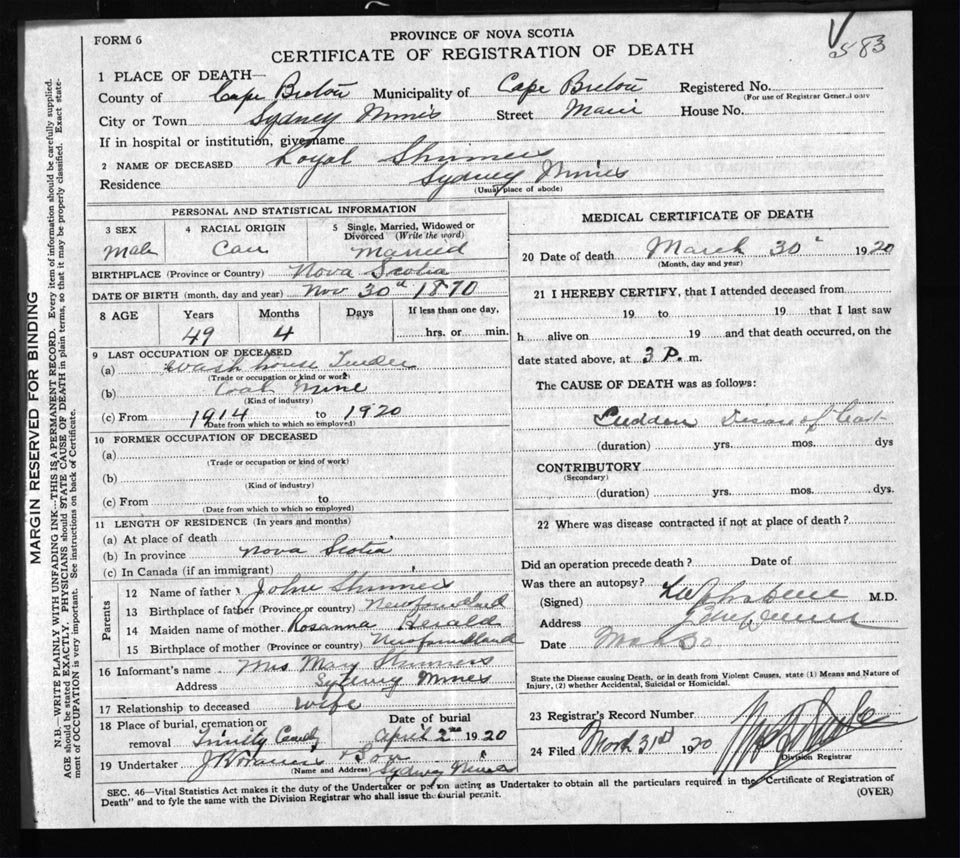 583
FORM 6
PROVINCE OF NOVA SCOTIA
CERTIFICATE OF REGISTRATION OF DEATH
1 PLACE OF DEATH—
County of Cape Breton Municipality of Cape Breton Registered No.
(For use of Registrar General only)
City or Town Sydney Mines Street Main House No.
If in hospital or institution, give name
2 NAME OF DECEASED Loyal
Residence Sydney Mines
(Usual place of abode)
PERSONAL AND STATISTICAL INFORMATION
3 SEX 4 RACIAL ORIGIN 5 Single, Married, Widowed or Divorced (Write the word)
Male Can Married
BIRTHPLACE (Province or Country) Nova Scotia
DATE OF BIRTH (month, day and year) Nov 30th 1870
8 AGE Years Months Days If less than one day,
49 4 hrs. or min.
9 LAST OCCUPATION OF DECEASED
(a) Wash house Tender
(Trade or occupation or kind of work)
(b) Coal Mine
(Kind of industry)
(c) From 1914 to 1920
(Date from which to which so employed)
10 FORMER OCCUPATION OF DECEASED
(a)
(Trade or occupation or kind of work)
(b)
(Kind of industry)
(c) From to
(Date from which to which so employed)
11 LENGTH OF RESIDENCE (In years and months)
(a) At place of death
(b) In province Nova Scotia
(c) In Canada (if an immigrant)
Parents
12 Name of father John
13 Birthplace of father (Province or country) Newfoundland
14 Maiden name of mother Rosanna Herald
15 Birthplace of mother (Province or country) Newfoundland
16 Informant's name Mrs May
Address Sydney Mines
17 Relationship to deceased Wife
18 Place of burial, cremation or removal Trinity Date of burial April 2nd 1920
19 Undertaker
(Name and Address) Sydney Mines
MEDICAL CERTIFICATE OF DEATH
20 Date of death March 30 1920
(Month, day and year)
21 I HEREBY CERTIFY, that I attended deceased from
19 to 19 that I last saw
h alive on 19 and that death occurred, on the
date stated above, at 3 P. m.
The CAUSE OF DEATH was as follows:
Sudden Disease of heart
(duration) yrs. mos. dys
CONTRIBUTORY
(Secondary)
(duration) yrs. mos. dys.
22 Where was disease contracted if not at place of death?
Did an operation precede death? Date of
Was there an autopsy?
(Signed) M.D.
Address
Date Mar 30
State the Disease causing Death, or in death from Violent Causes, state (1) Means and Nature of
Injury, (2) whether Accidental, Suicidal or Homicidal.
23 Registrar's Record Number
24 Filed March 31st 1920
Division Registrar
SEC. 46—Vital Statistics Act makes it the duty of the Undertaker or person acting as Undertaker to obtain all the particulars required in the Certificate of Registration of
Death" and to fyle the same with the Division Registrar who shall issue the burial permit. (OVER)
MARGIN RESERVED FOR BINDING
N.B.—WRITE PLAINLY WITH UNFADING INK—THIS IS A PERMANENT RECORD. Every item of information should be carefully supplied.
AGE should be stated EXACTLY. PHYSICIANS should STATE CAUSE OF DEATH in plain terms, so that it may be properly classified. Exact state-
ment of OCCUPATION is very important. See instructions on back of Certificate.